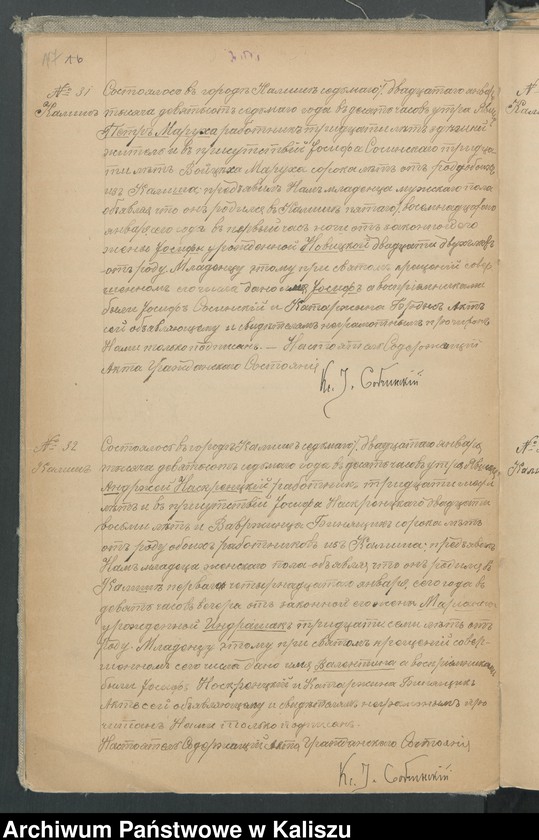 16
№ 31
Калишъ
Состоялось въ городѣ Калишѣ седьмаго/двадцатаго января
тысяча девятьсотъ седьмаго года въ десять часовъ утра
Петръ Маруха работникъ тридцати лѣтъ
житель и въ присутствіи Іосифа Сосинскаго тридца
ти лѣтъ Войцѣха Маруха сорока лѣтъ отъ роду обоихъ
изъ Калиша; предъявилъ Намъ младенца мужскаго пола
объявляя что онъ родился въ Калишѣ пятаго/восемнадцатаго
января сего года въ первый часъ ночи отъ законной его
жены Іосифы урожденной Новицкой двадцати двухъ лѣтъ
отъ роду. Младенцу этому при святомъ крещеніи совер
шенномъ сего числа дано имя Іосифъ а воспріемниками
были Іосифъ Сосинскій и Катаржина Актъ
сей объявляющему и свидѣтелямъ неграмотнымъ прочитанъ
Нами только подписанъ. — Настоятель Содержащій
Акта Гражданскаго Состоянія
Кс. І. Собчинскій
№ 32
Калишъ
Состоялось въ городѣ Калишѣ седьмаго/двадцатаго января
тысяча девятьсотъ седьмаго года въ десять часовъ утра Явился
Андржей Наскренцкій работникъ тридцати
лѣтъ и въ присутствіи Іосифа Наскренцкаго двадцати
восьми лѣтъ и Вавржинца сорока лѣтъ
отъ роду обоихъ работниковъ изъ Калиша; предъявилъ
Намъ младенца женскаго пола объявляя что онъ родился въ
Калишѣ перваго/четырнадцатаго января сего года въ
девять часовъ вечера отъ законной его жены Маріанны
урожденной Индрашакъ тридцати семи лѣтъ отъ
роду. Младенцу этому при святомъ крещеніи совер-
шенномъ сего числа дано имя Валентина а воспріемниками
были Іосифъ Наскренцкій и Катаржина
Актъ сей объявляющему и свидѣтелямъ неграмотнымъ про
читанъ Нами только подписанъ.
Настоятель Содержащій Акты Гражданскаго Состоянія
Кс. І. Собчинскій
№
Кали
№
Кали
Archiwum Państwowe w Kaliszu